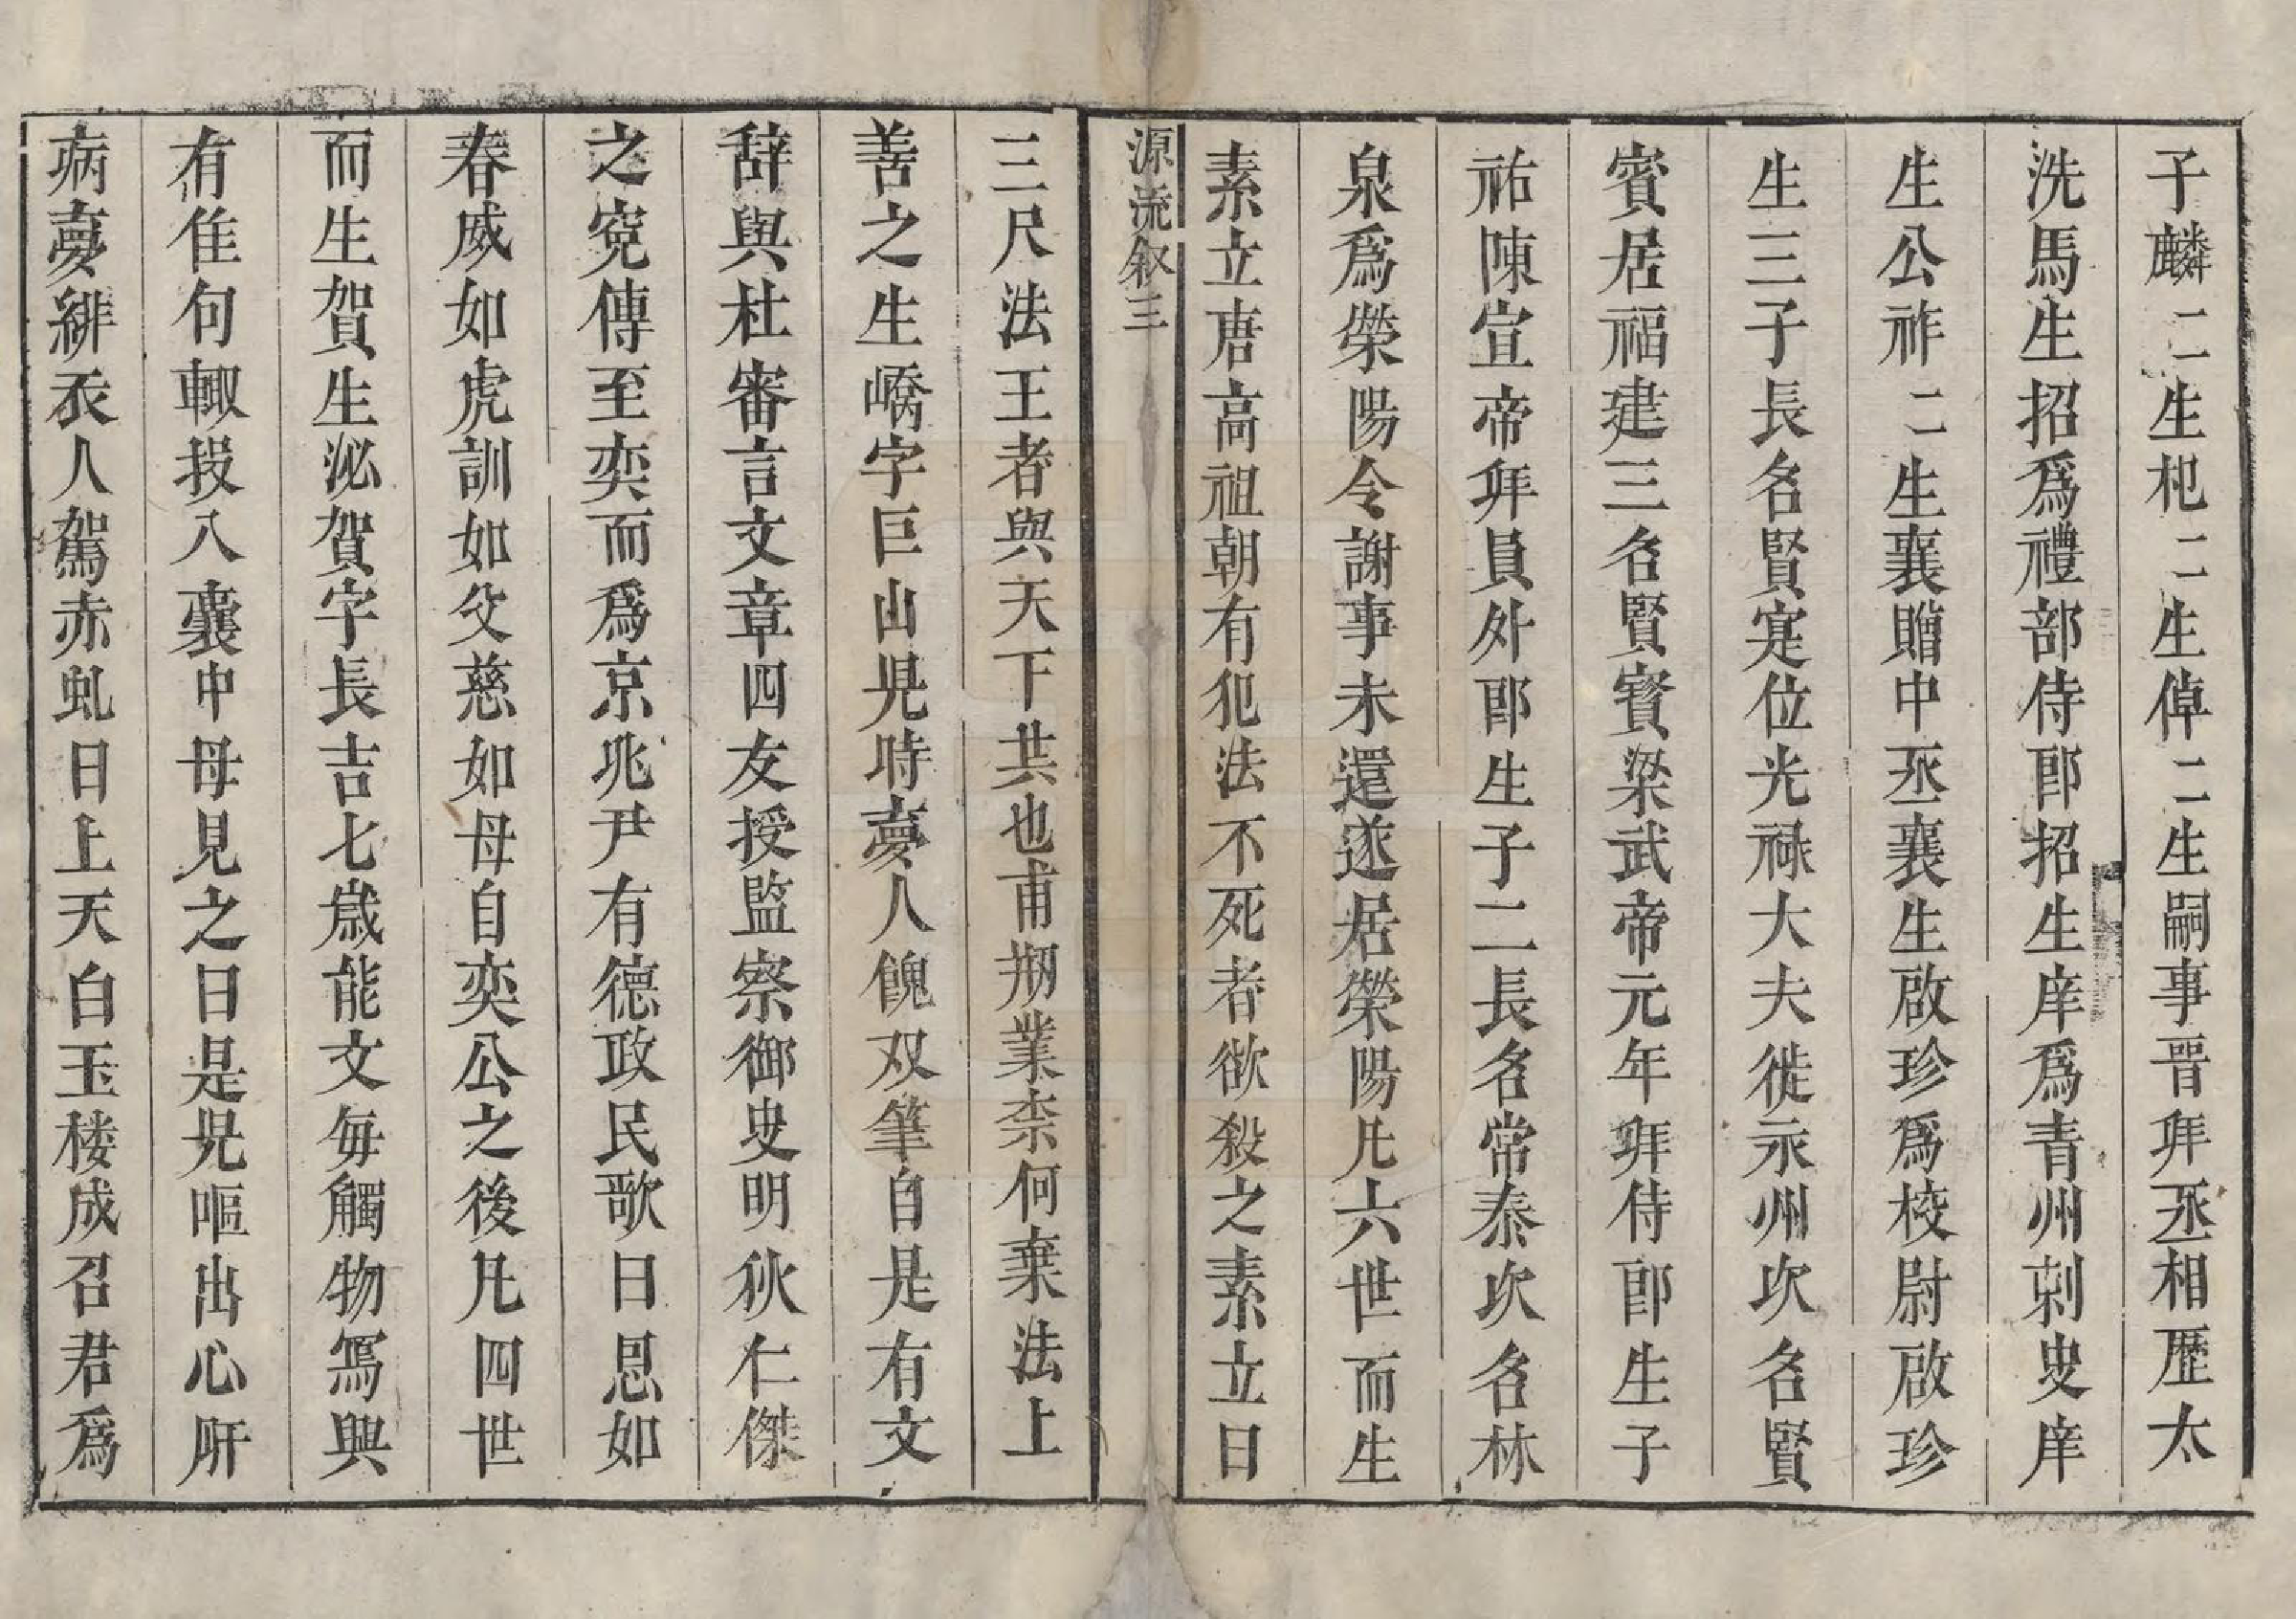 子麟二生杞二生倬二生嗣事晋拜丞相歷太
洗馬生招爲禮部侍郎招生庠爲青州刺史庠
生公祚二生襄贈中丞襄生啟珍爲校尉啟珍
生三子長名賢寔位光禄大夫徙永州次名賢
賓居福建三名賢寳梁武帝元年拜侍郎生子
祐陳宣帝拜員外郎生子二長名常泰次名林
泉爲滎陽令謝事未還遂居滎陽凡六世而生
素立唐高祖朝有犯法不死者欲殺之素立曰
源流叙三
三尺法王者與天下共也甫刱業柰何棄法上
善之生嶠字巨山児時夢人餽双筆自是有文
辞與杜審言文章四友授監察御史明狄仁傑
之寃傳至奕而爲京兆尹有德政民歌曰恩如
春威如虎訓如父慈如母自奕公之後凡四世
而生賀生泌賀字長吉七歲能文每觸物寫興
有佳句輙投入囊中母見之曰是児嘔出心肝
病夢緋衣人駕赤虬日上天白玉楼成召君爲